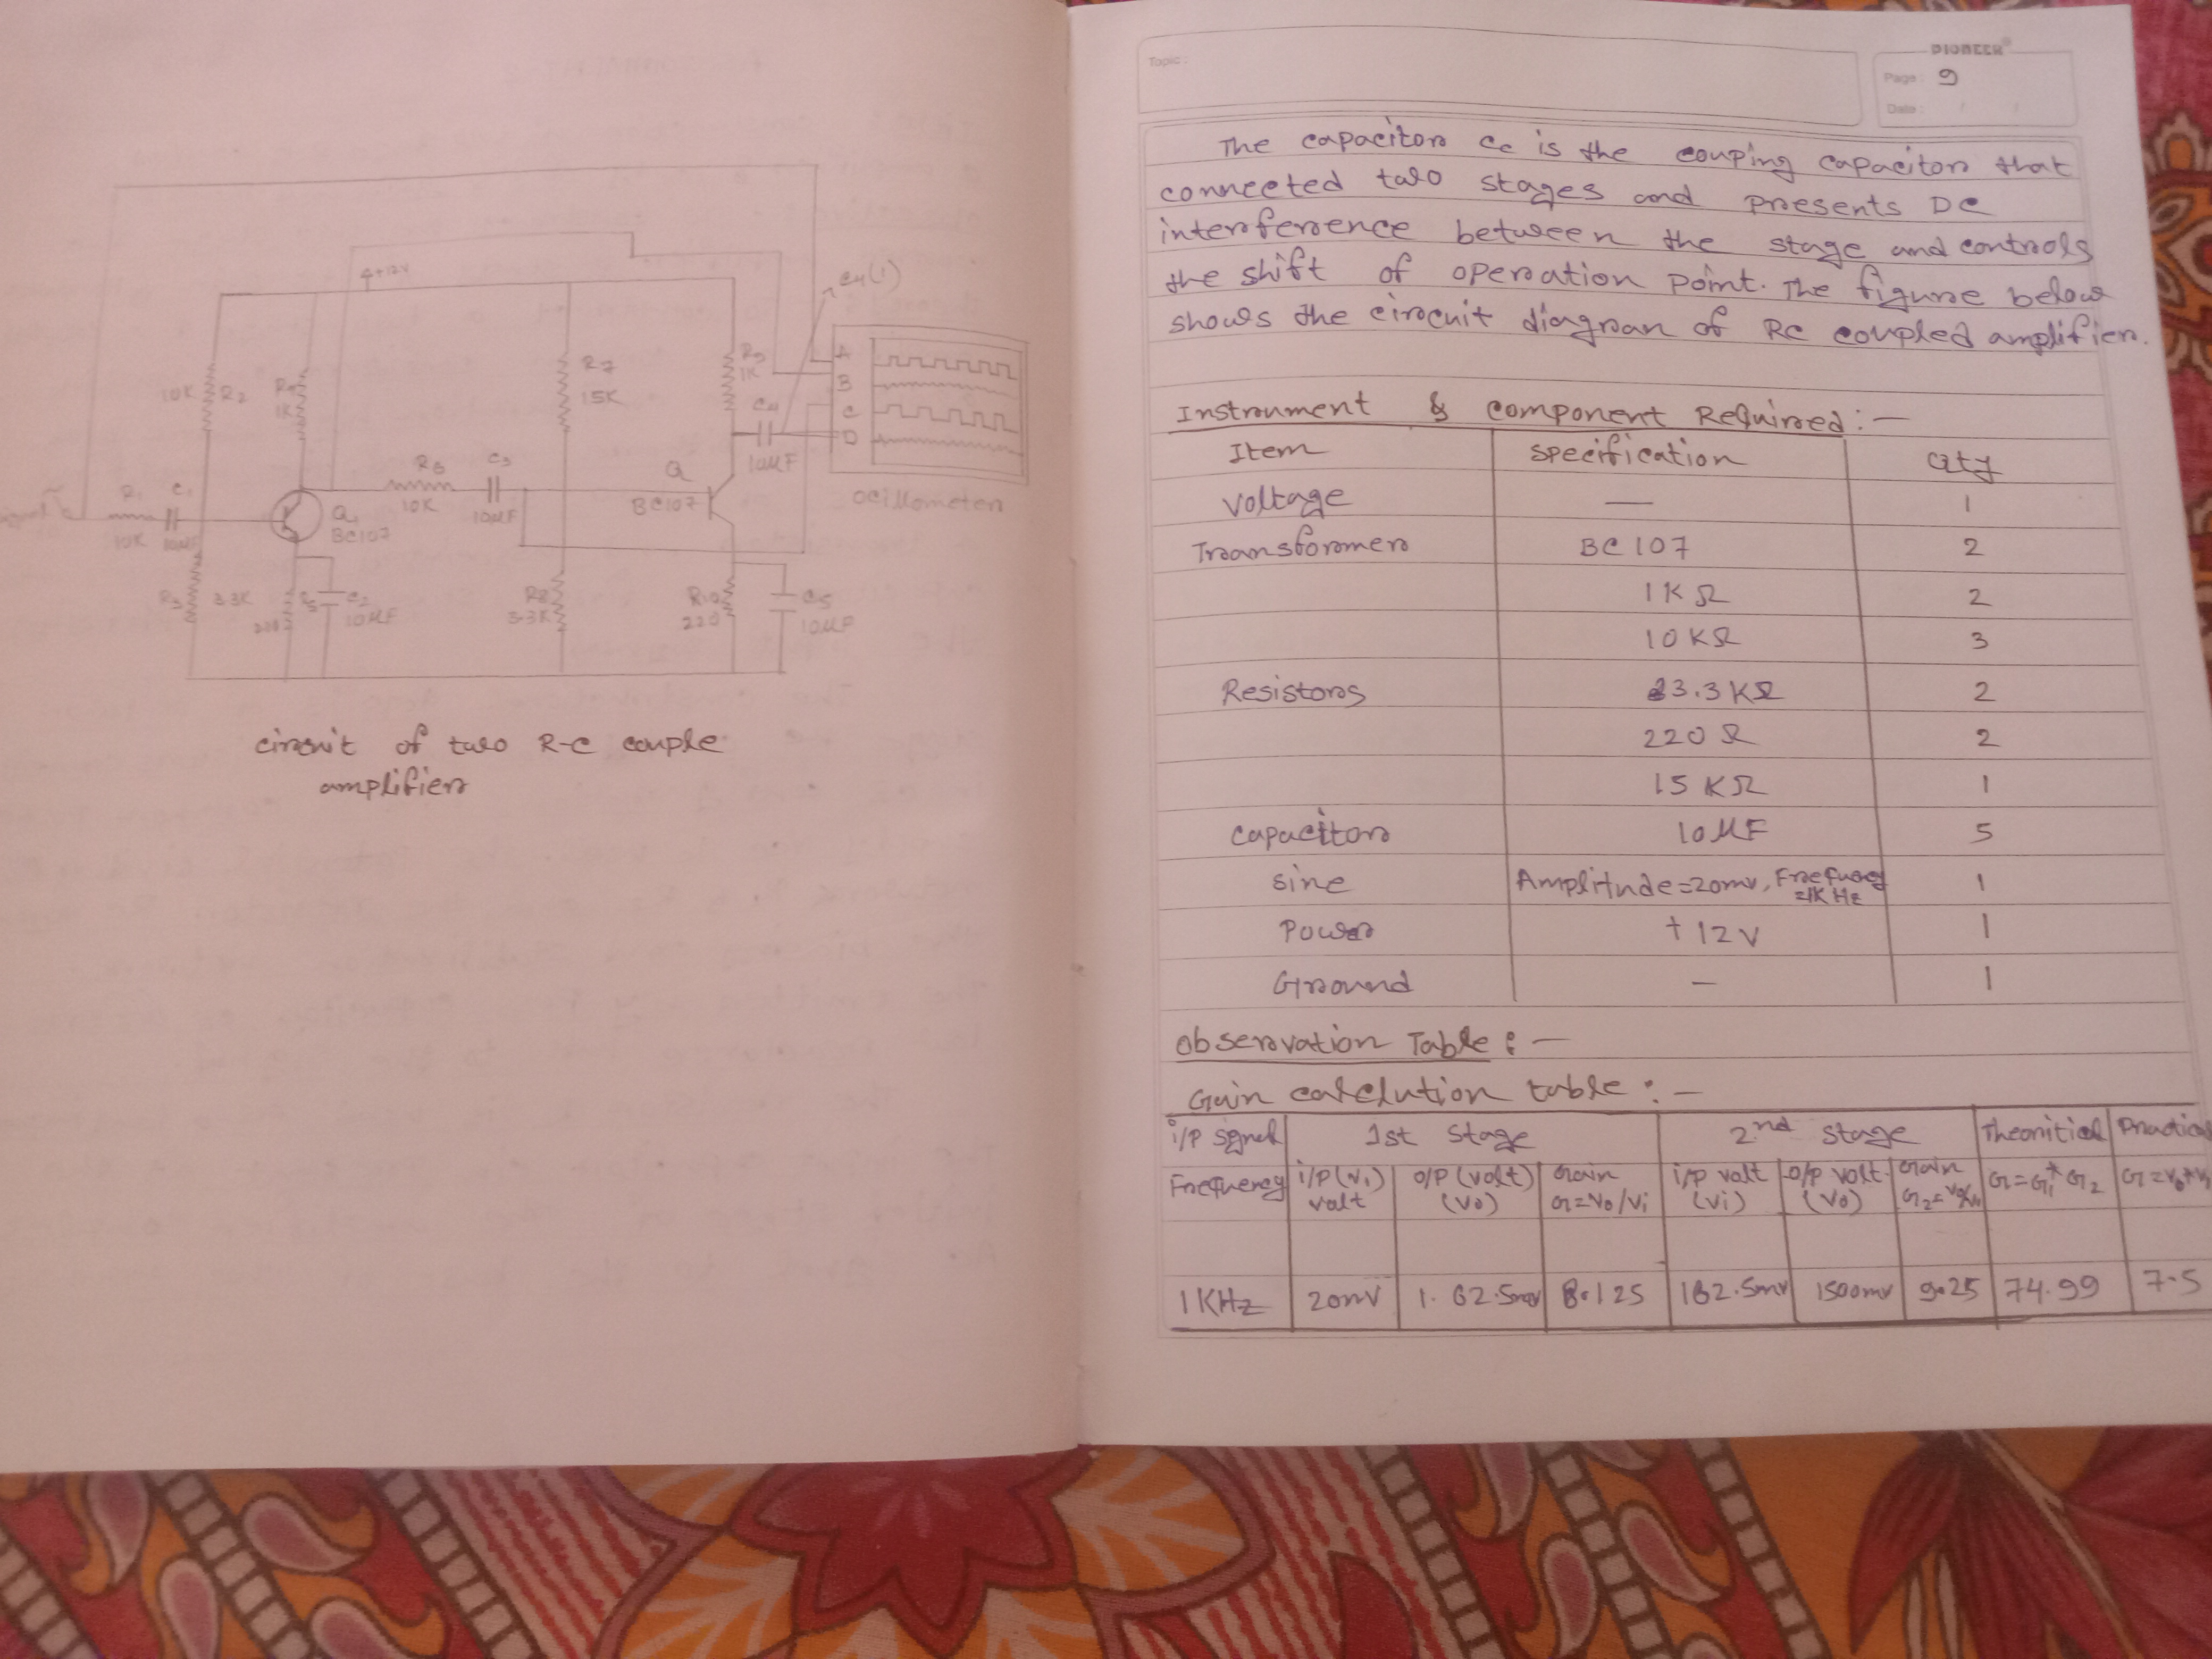 4+12V
C4(1)
10K R2
R4
1K
R7
15K
R9
1K
A
B
C
D
C4
10MF
R6
10K
C3
10MF
Q
BC107
Ocillometer
R1 C1
10K 10MF
Q1
BC107
R3 3.3K
220 R5 C2
10MF
R8
3.3K
R10
220
C5
10MF
circuit of two R-C couple
amplifier
Topic :
PIONEER
Page: 9
Date : / /
The capacitor Cc is the couping capacitor that
connected two stages and presents DC
interference between the stage and controls
the shift of operation point. The figure below
shows the circuit diagram of RC coupled amplifier.
Instrument & component Required : —
Item specification Qty
voltage — 1
Transformer BC 107 2
1KΩ 2
10KΩ 3
Resistors 3.3KΩ 2
220Ω 2
15KΩ 1
capacitor 10MF 5
sine Amplitude=20mv, Frefuncy =1KHz 1
Power +12V 1
Ground — 1
Observation Table : —
Gain calclution table : —
i/p signal 1st stage 2nd stage Theoritical Practical
Frequency i/P(vi) volt O/P (volt) (Vo) Gain G=Vo/Vi i/p volt (Vi) O/p volt (Vo) Gain G2= G=G1*G2
1KHz 20mV 1.62.5mv 8.125 162.5mv 1500mv 9.25 74.99 7.5